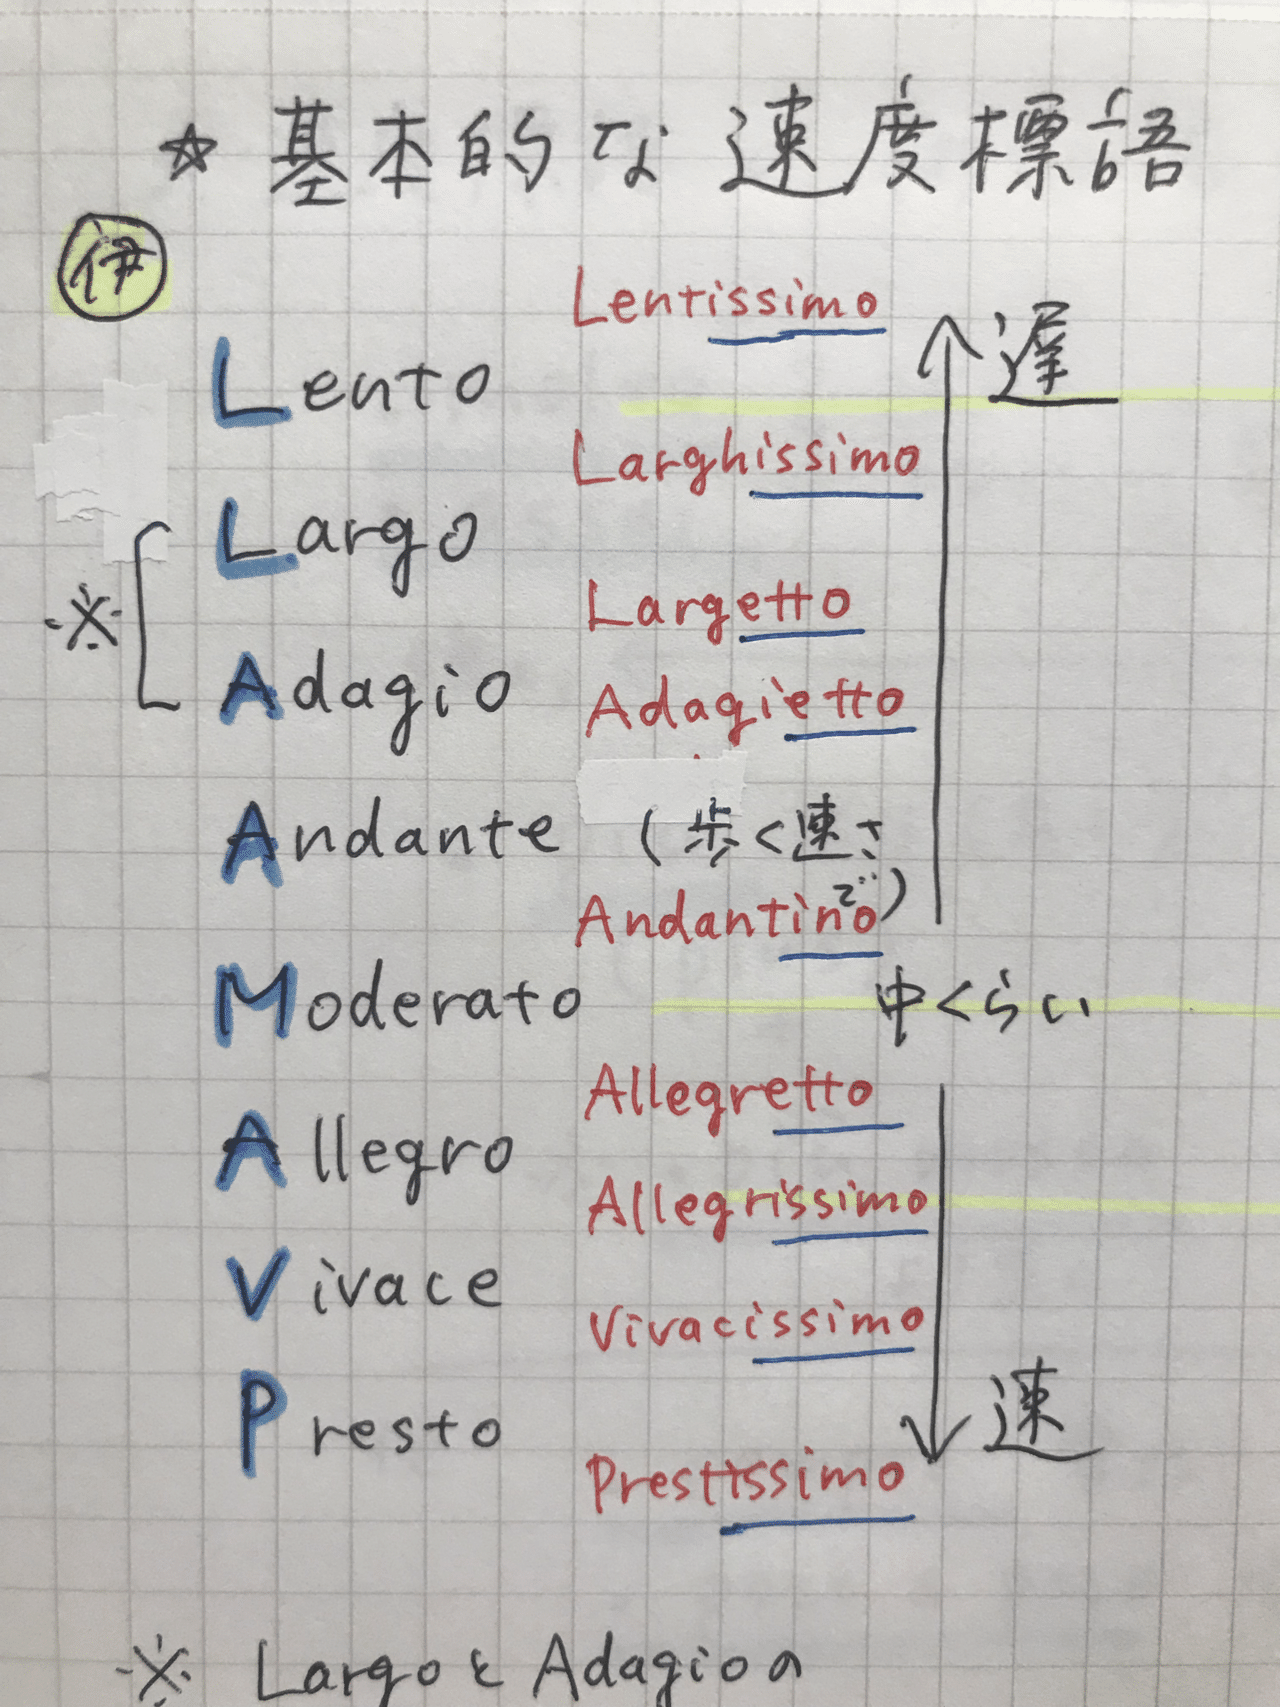 ☆ 基本的な速度標語
伊
Lentissimo
遅
Lento
Larghissimo
Largo
※
Largetto
Adagio
Adagietto
Andante (歩く速さで)
Andantino
Moderato 中くらい
Allegretto
Allegro
Allegrissimo
Vivace
Vivacissimo
Presto
速
Prestissimo
※ LargoとAdagioの